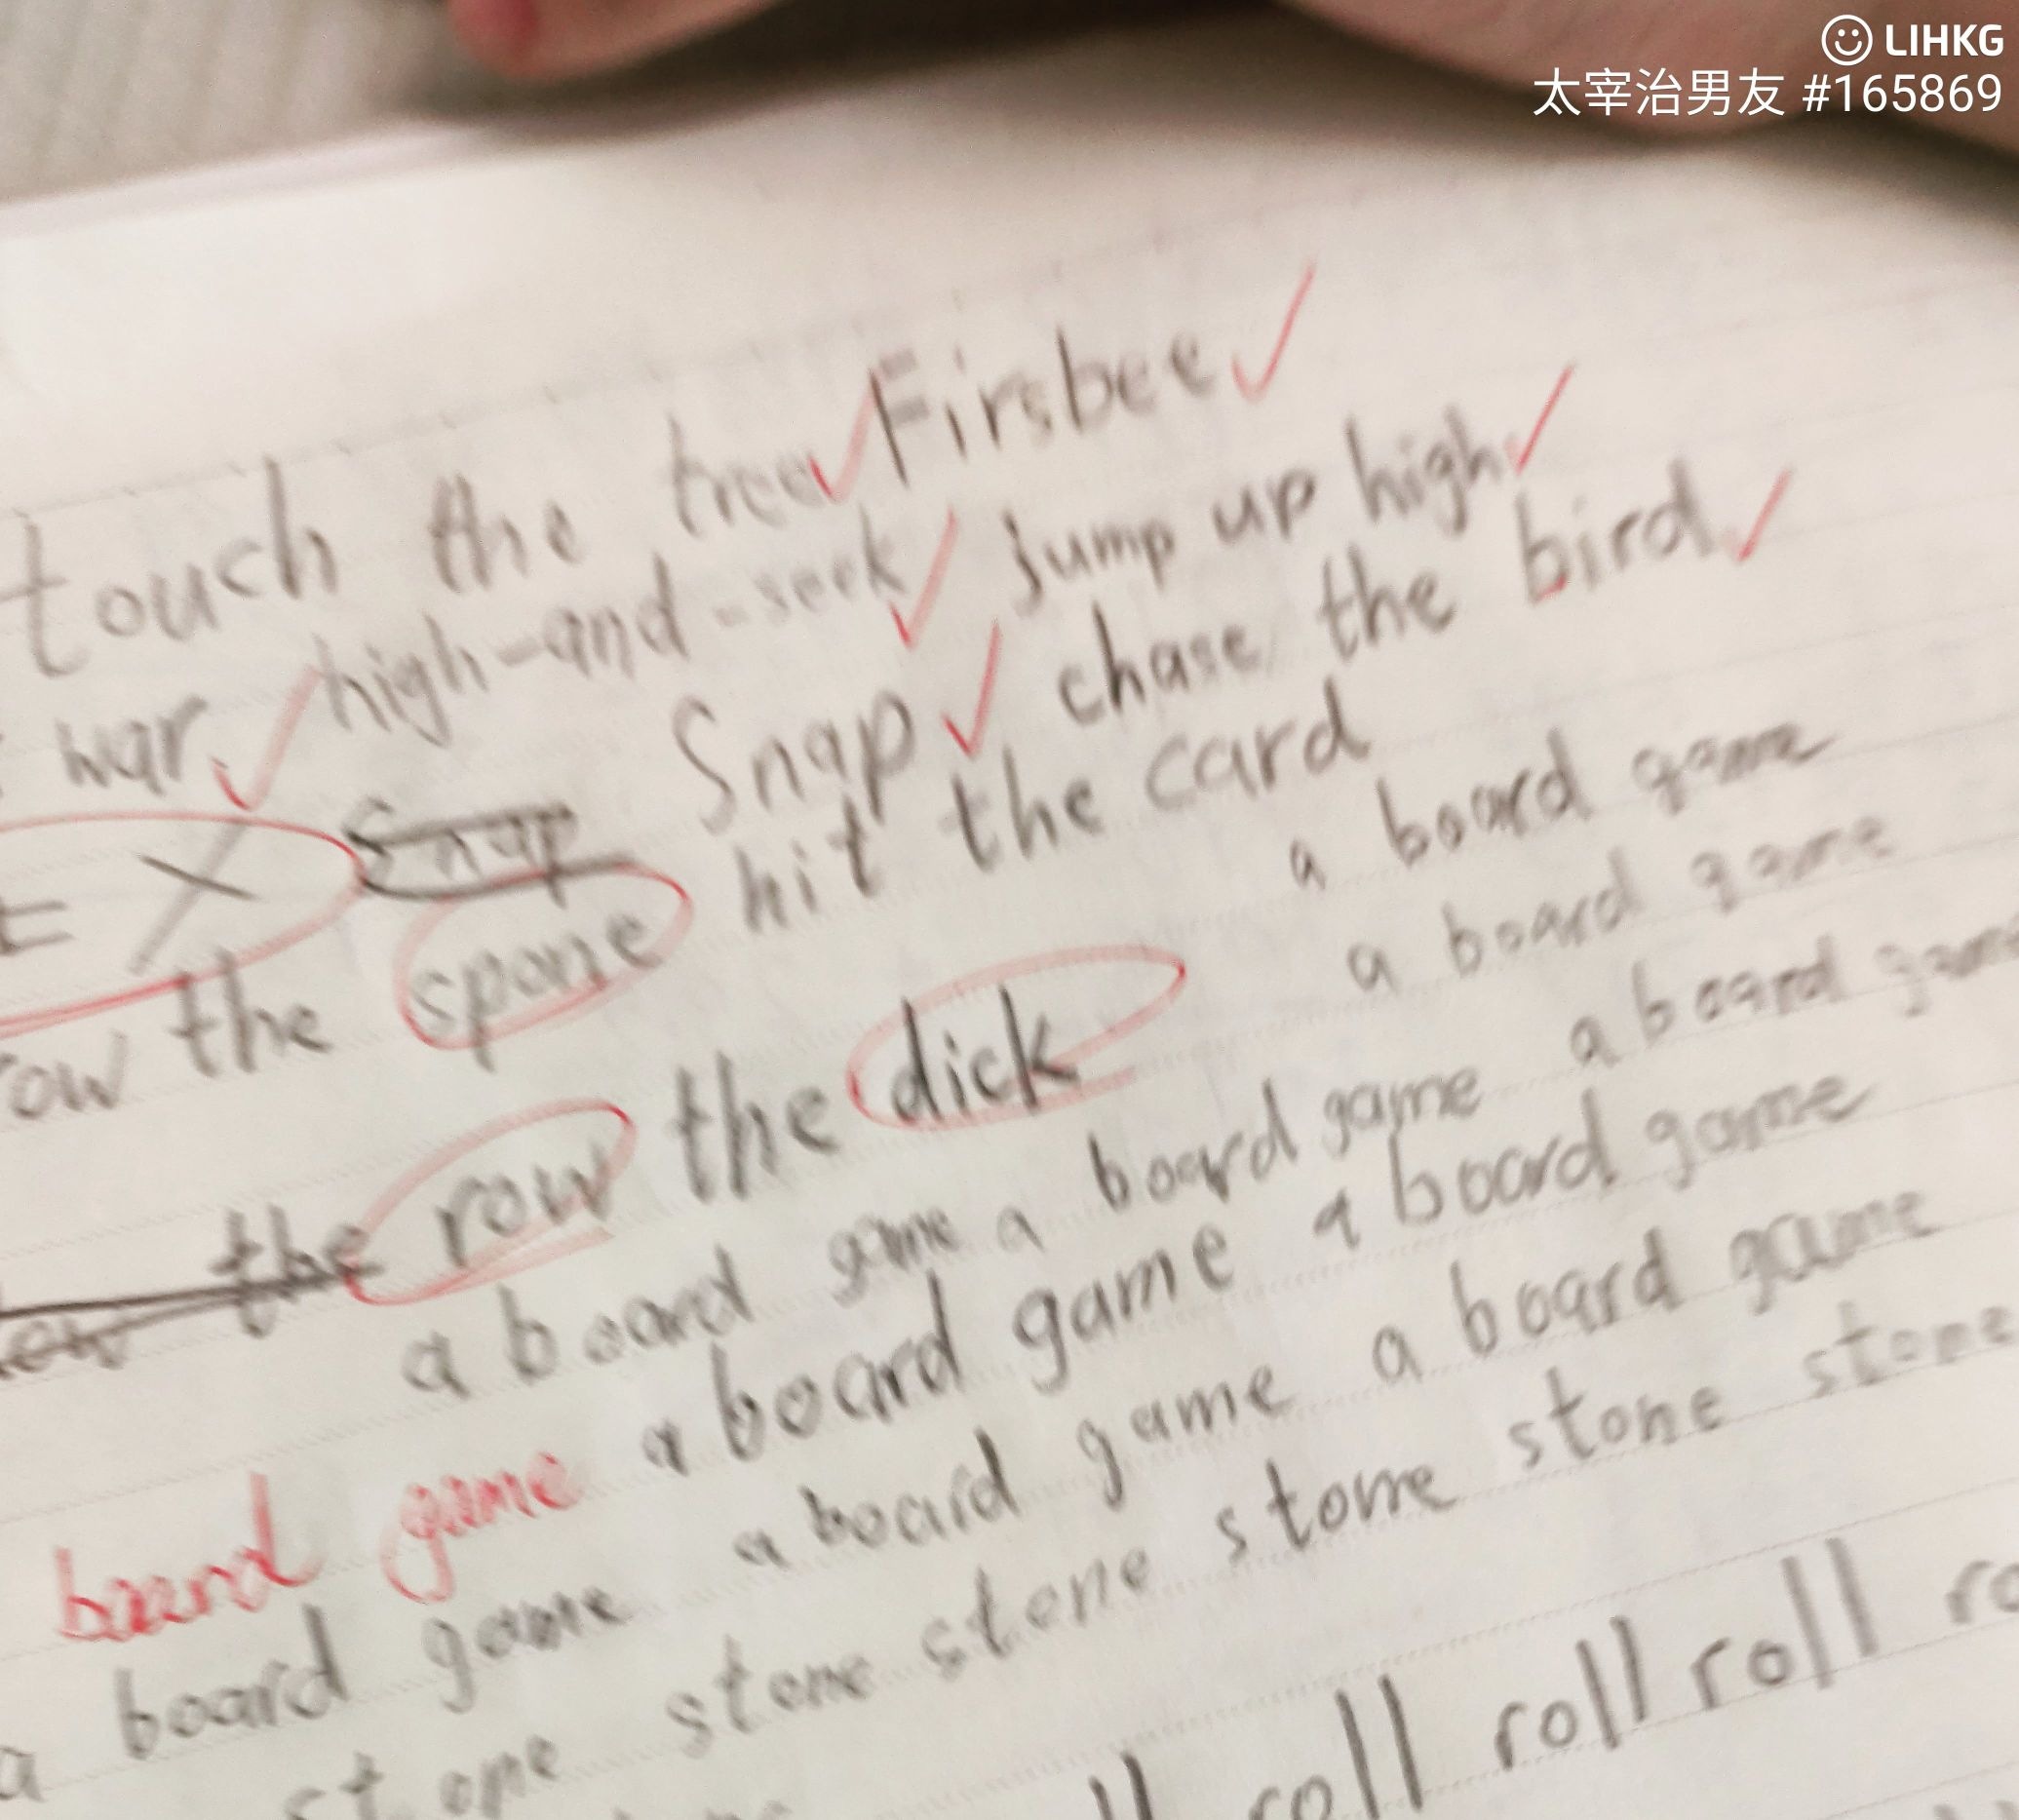 LIHKG
太宰治男友 #165869
touch the tree Firsbee
war high-and-seek jump up high
Snap Snap chase the bird
the spone hit the card
the row the dick a board game
a board game a board game a board game
board game a board game a board game a board game
a board game a board game a board game a board game
stone stone stone stone stone
roll roll roll